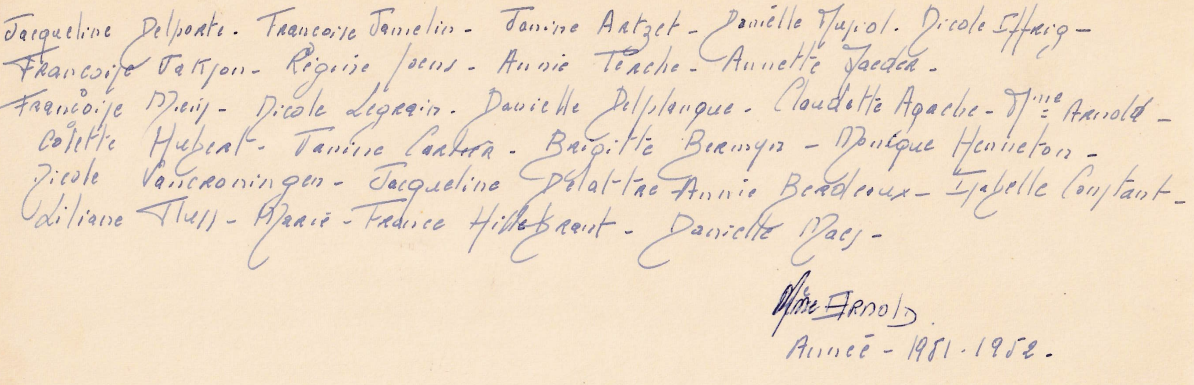 Jacqueline Delporte - Françoise Jamelin - Janine Artzet - Danielle Mupol. Nicole Iffrig -
Françoise Jakson - Régine Joens - Annie Terche - Annette Jaeder -
Françoise Meis - Nicole Legrain - Danielle Delplanque - Claudette Agache - Mme Arnold -
Colette Hubert - Janine Carlier - Brigitte Bermyn - Monique Henneton -
Nicole Vancroningen - Jacqueline Delattre Annie Berdeaux - Isabelle Constant -
Liliane Thuss - Marie - France Hillebrant - Danielle Maes -
Mme Arnold
Année - 1951 - 1952 -